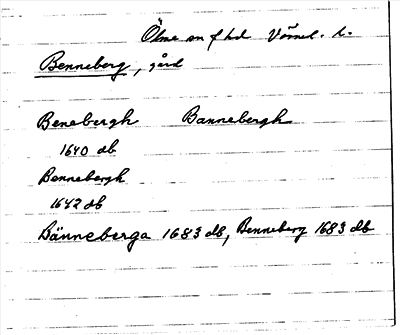 Ölme sn f hd Värml. l.
Benneberg, gård
Benebergh Bannebergh
1640 db
Bennebergh
1647 db
Bänneberga 1683 db, Benneberg 1683 db